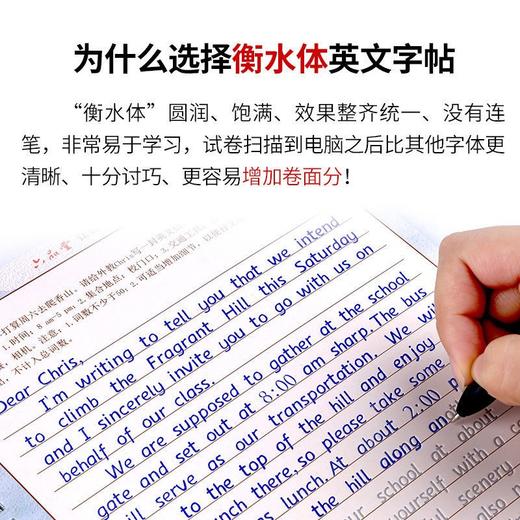 为什么选择衡水体英文字帖
“衡水体”圆润、饱满、效果整齐统一、没有连
笔，非常易于学习，试卷扫描到电脑之后比其他字体更
清晰、十分讨巧、更容易增加卷面分！
六品堂
打算周六去爬香山，请给外教Chris写一封
1.时间：8
2.集合地点：校门口；3.交通工具
注意：1.词数不少于50；2.可适当增加细节，以使行文
不计入总词数。
Dear Chris,
I'm writing to tell you that we intend
to climb the Fragrant Hill this Saturday
and I sincerely invite you to go with us on
behalf of our class.
We are supposed to gather at the school
gate and set out at 8:00 am sharp. The bus
will serve as our transportation. We will
to the top of the hill and enjoy
lunch there, so please take some
lunch. At about 2:00 p
the hill along and
our school at about
yourself with a co
scenery